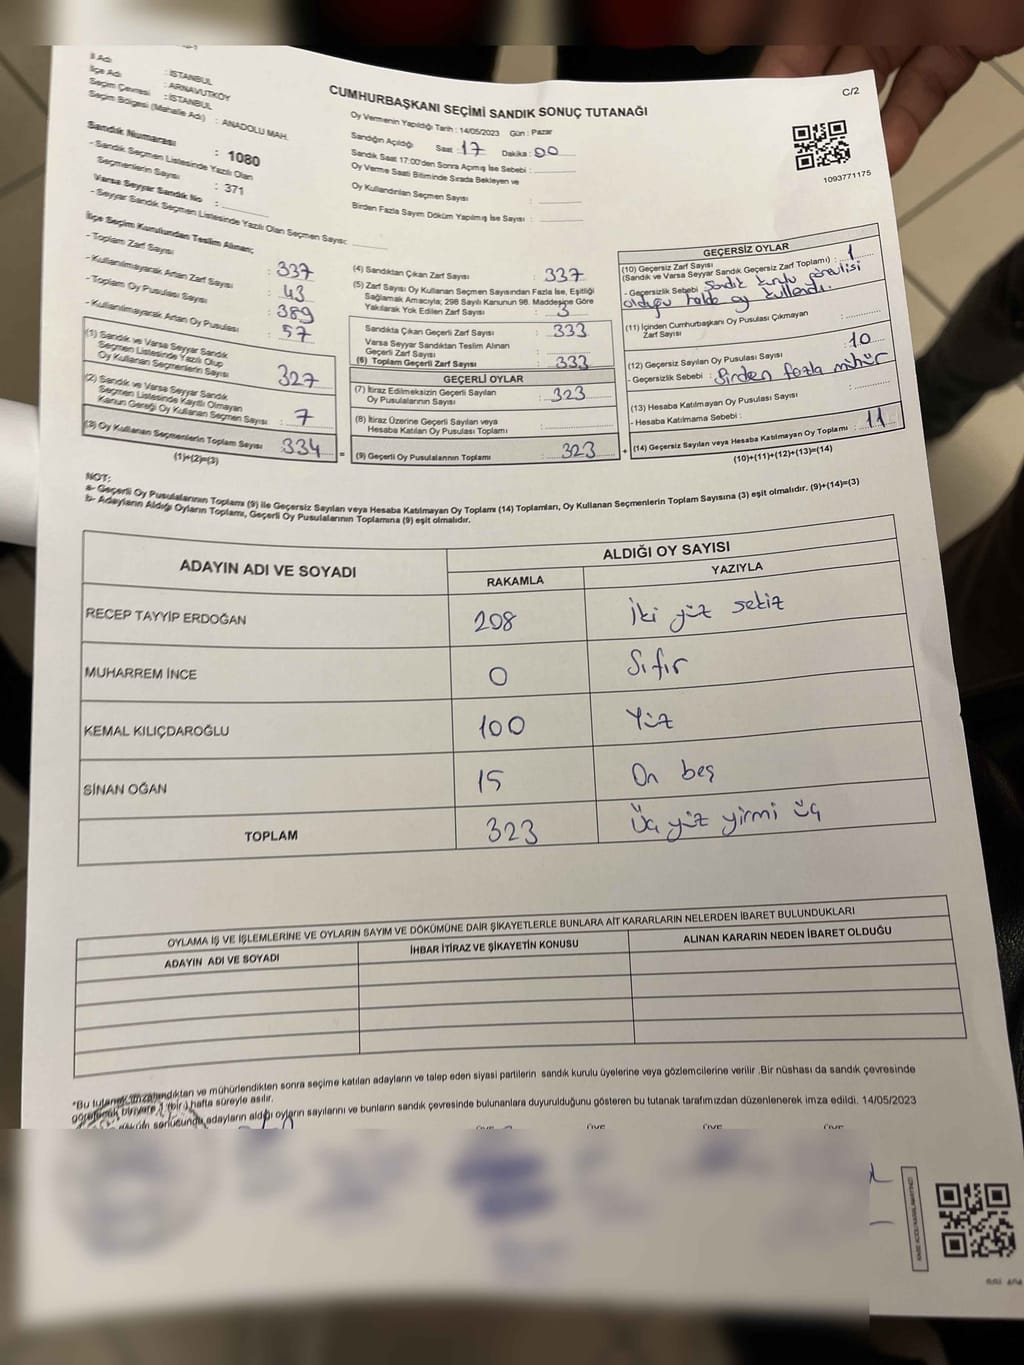 İl Adı : İSTANBUL
İlçe Adı : ARNAVUTKÖY
Seçim Çevresi : İSTANBUL
Seçim Bölgesi (Mahalle Adı) : ANADOLU MAH.
Sandık Numarası : 1080
- Sandık Seçmen Listesinde Yazılı Olan
Seçmenlerin Sayısı : 371
Varsa Seyyar Sandık No :
- Seyyar Sandık Seçmen Listesinde Yazılı Olan Seçmen Sayısı:
CUMHURBAŞKANI SEÇİMİ SANDIK SONUÇ TUTANAĞI
Oy Vermenin Yapıldığı Tarih : 14/05/2023 Gün : Pazar
Sandığın Açıldığı Saat : 17 Dakika : 00
Sandık Saat 17:00'den Sonra Açımış İse Sebebi :
Oy Verme Saati Bitiminde Sırada Bekleyen ve
Oy Kullandırılan Seçmen Sayısı :
Birden Fazla Sayım Döküm Yapılmış İse Sayısı :
C/2
1093771175
İlçe Seçim Kurulundan Teslim Alınan;
- Toplam Zarf Sayısı : 337
- Kullanılmayarak Artan Zarf Sayısı : 43
- Toplam Oy Pusulası Sayısı : 389
- Kullanılmayarak Artan Oy Pusulası : 57
(1) Sandık ve Varsa Seyyar Sandık
Seçmen Listesinde Yazılı Olup
Oy Kullanan Seçmenlerin Sayısı : 327
(2) Sandık ve Varsa Seyyar Sandık
Seçmen Listesinde Kayıtlı Olmayan
Kanun Gereği Oy Kullanan Seçmen Sayısı : 7
(3) Oy Kullanan Seçmenlerin Toplam Sayısı : 334
(1)+(2)=(3)
(4) Sandıktan Çıkan Zarf Sayısı : 337
(5) Zarf Sayısı Oy Kullanan Seçmen Sayısından Fazla İse, Eşitliği
Sağlamak Amacıyla; 298 Sayılı Kanunun 98. Maddesine Göre
Yakılarak Yok Edilen Zarf Sayısı : 3
Sandıkta Çıkan Geçerli Zarf Sayısı : 333
Varsa Seyyar Sandıktan Teslim Alınan
Geçerli Zarf Sayısı :
(6) Toplam Geçerli Zarf Sayısı : 333
GEÇERLİ OYLAR
(7) İtiraz Edilmeksizin Geçerli Sayılan
Oy Pusulalarının Sayısı : 323
(8) İtiraz Üzerine Geçerli Sayılan veya
Hesaba Katılan Oy Pusulası Toplamı :
= (9) Geçerli Oy Pusulalarının Toplamı : 323 +
GEÇERSİZ OYLAR
(10) Geçersiz Zarf Sayısı
(Sandık ve Varsa Seyyar Sandık Geçersiz Zarf Toplamı) : 1
- Geçersizlik Sebebi : Sandık kurulu görevlisi
olduğu halde oy kullandı.
(11) İçinden Cumhurbaşkanı Oy Pusulası Çıkmayan
Zarf Sayısı :
(12) Geçersiz Sayılan Oy Pusulası Sayısı : 10
- Geçersizlik Sebebi : Birden fazla mühür
(13) Hesaba Katılmayan Oy Pusulası Sayısı :
- Hesaba Katılmama Sebebi :
(14) Geçersiz Sayılan veya Hesaba Katılmayan Oy Toplamı : 11
(10)+(11)+(12)+(13)=(14)
NOT:
a- Geçerli Oy Pusulalarının Toplamı (9) ile Geçersiz Sayılan veya Hesaba Katılmayan Oy Toplamı (14) Toplamları, Oy Kullanan Seçmenlerin Toplam Sayısına (3) eşit olmalıdır. (9)+(14)=(3)
b- Adayların Aldığı Oyların Toplamı, Geçerli Oy Pusulalarının Toplamına (9) eşit olmalıdır.
ADAYIN ADI VE SOYADI
ALDIĞI OY SAYISI
RAKAMLA YAZIYLA
RECEP TAYYİP ERDOĞAN 208 İki yüz sekiz
MUHARREM İNCE 0 Sıfır
KEMAL KILIÇDAROĞLU 100 Yüz
SİNAN OĞAN 15 On beş
TOPLAM 323 Üç yüz yirmi üç
OYLAMA İŞ VE İŞLEMLERİNE VE OYLARIN SAYIM VE DÖKÜMÜNE DAİR ŞİKAYETLERLE BUNLARA AİT KARARLARIN NELERDEN İBARET BULUNDUKLARI
ADAYIN ADI VE SOYADI İHBAR İTİRAZ VE ŞİKAYETİN KONUSU ALINAN KARARIN NEDEN İBARET OLDUĞU
*Bu tutanak imzalandıktan ve mühürlendikten sonra seçime katılan adayların ve talep eden siyasi partilerin sandık kurulu üyelerine veya gözlemcilerine verilir .Bir nüshası da sandık çevresinde
görülecek bir yere 1 (bir ) hafta süreyle asılır.
sonucunda adayların aldığı oyların sayılarını ve bunların sandık çevresinde bulunanlara duyurulduğunu gösteren bu tutanak tarafımızdan düzenlenerek imza edildi. 14/05/2023
ÜYE ÜYE ÜYE ÜYE